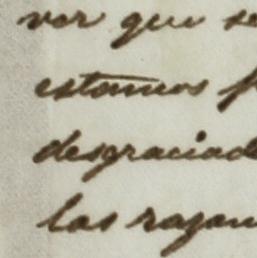 ver que se
estamos p
desgraciad
las razon